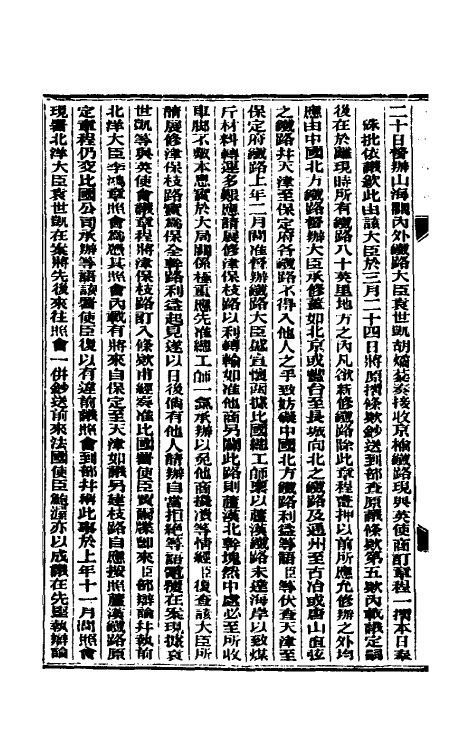 二十日督辦山海關內外鐵路大臣袁世凱胡燏棻奏接收京榆鐵路現與英使商訂章程一摺本日奉
硃批依議欽此由該大臣於三月二十四日將原摺條欵鈔送到部查原議條欵第五欵內載議定嗣
後在於離現時所有鐵路八十英里地方之內凡欲新修鐵路除此章程畫押以前所應允修辦之外均
應由中國北方鐵路督辦大臣承修並如北京或豐台至長城向北之鐵路及通州至古冶或唐山直弦
之鐵路并天津至保定府各鐵路不得入他人之手致妨礙中國北方鐵路利益等語臣等伏查天津至
保定府鐵路上年二月間准督辦鐵路大臣盛宣懷函據比國總工師稟以蘆漢鐵路未達海岸以致煤
斤材料轉運多艱應請展修津保枝路以利轉輸如准他商另闢此路則蘆漢北幹塊然中處必至所收
車腳不敷本息實於大局關係極重應先准總工師一氣承辦以免他商攙瀆等情經臣復查該大臣所
請展修津保枝路實為保全幹路利益起見遂以日後倘有他人請辦自當拒絕等語電覆在案現據袁
世凱等與英使會議章程將津保枝路訂入條欵甫經奏准比國署使臣賈爾牒即來臣部辯論并執前
北洋大臣李鴻章照會為憑其照會內載有將來自保定至天津如議另建枝路自應按照蘆漢鐵路原
定章程仍交比國公司承辦等語該署使臣復以有違前議照會到部并稱此事於上年十一月間照會
現署北洋大臣袁世凱在案將先後來往照會一併鈔送前來法國使臣鮑渥亦以成議在先堅執辯論